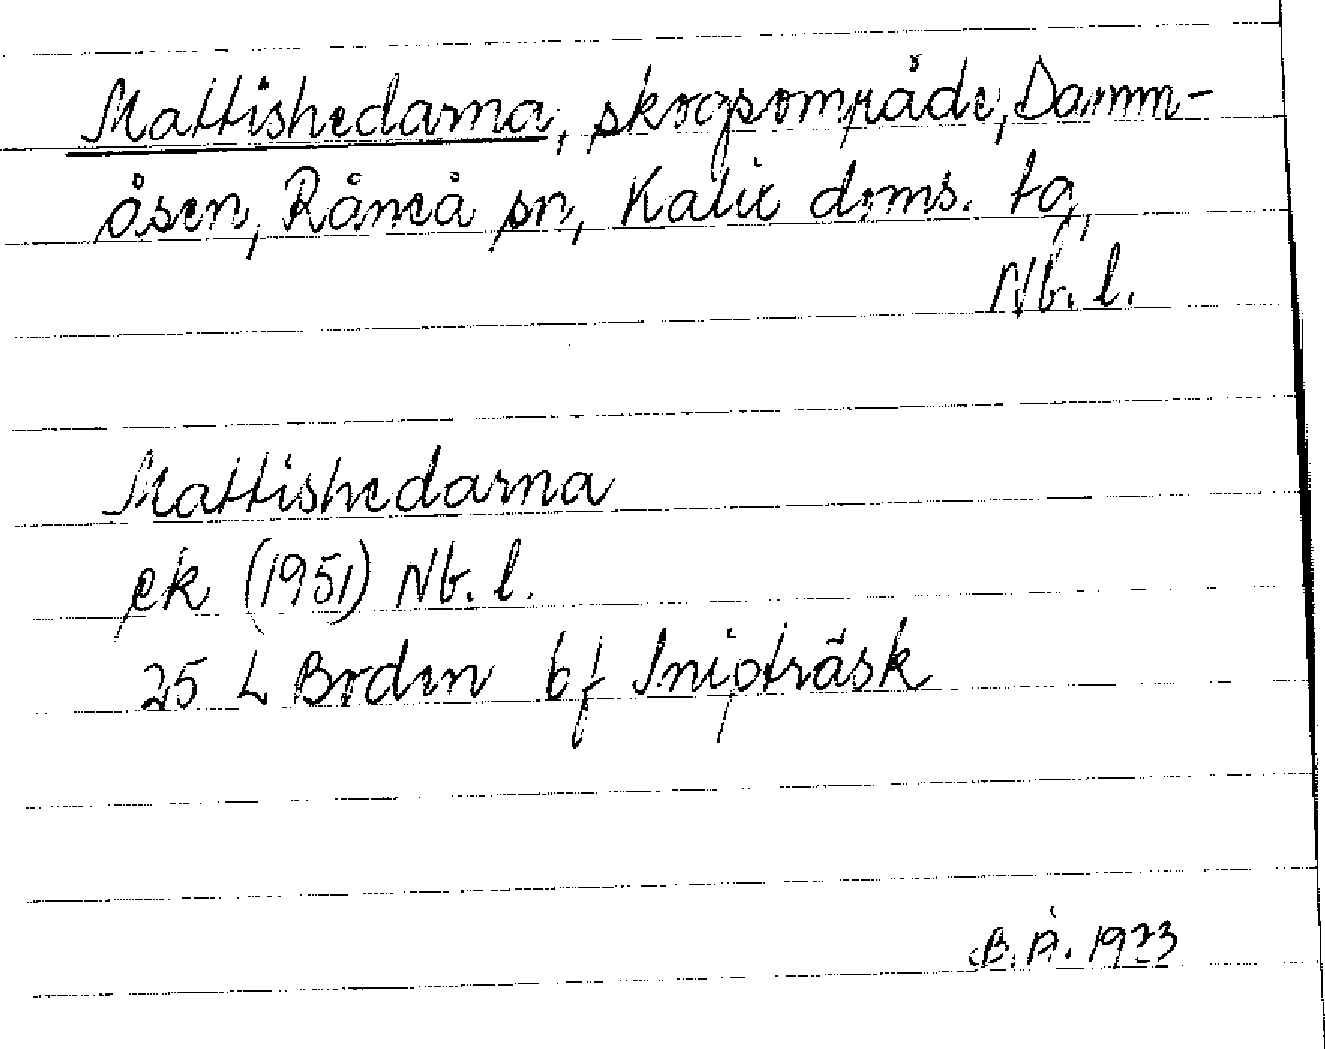 Mattishedarna, skogsområde, Damm-
åsen, Råneå sn, Kalix doms. tg,
Nb. l.
Mattishedarna
ek (1951) Nb. l.
25 L Boden bf Snipträsk
B.Å. 1973